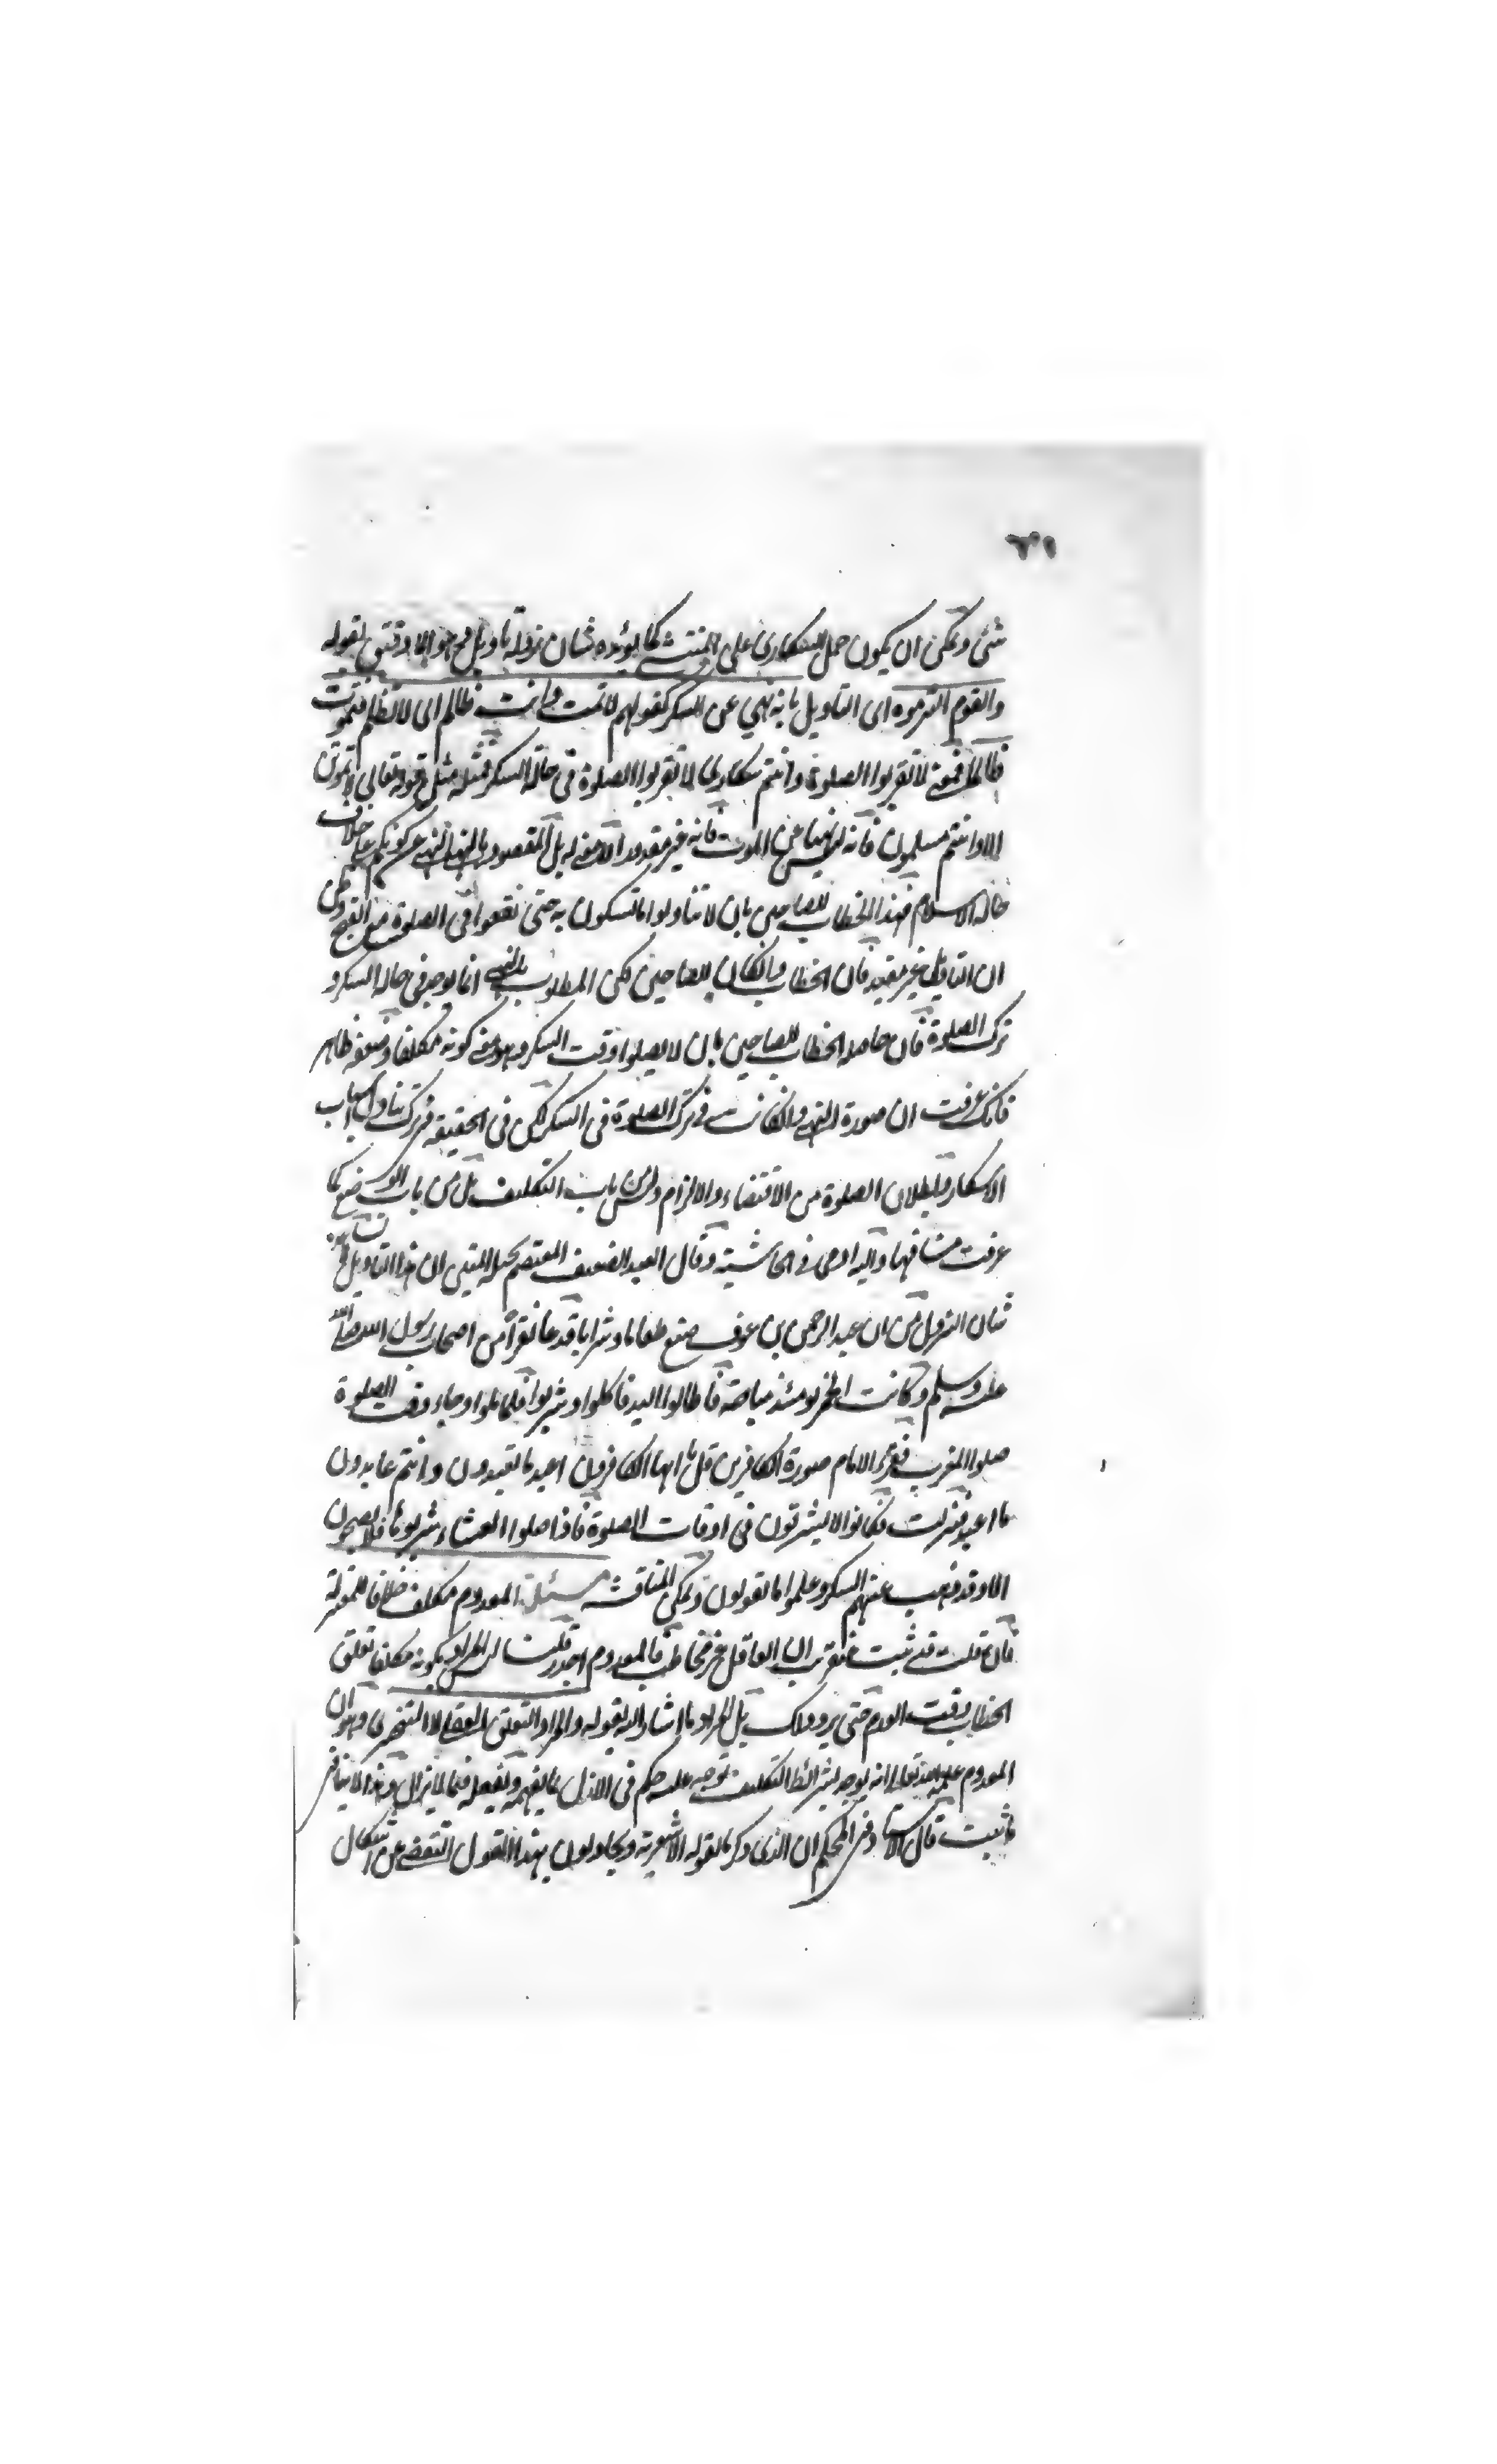 ٣١
شئ ويمكن ان يكون حمل السكارى على المنتشى كما يؤيده شان نزوله تاويل فى جوابها وقتى لقوله
والقوم التزموه اى التاويل بانه نهي عن السكر كقولهم لا تمت وانت ظالم اى لا تظلم فتموت
ظالما فمعنى لا تقربوا الصلوة وانتم سكارى لا تقربوا الصلوة فى حالة السكر فمثله مثل قوله تعالى لا تموتن
الا وانتم مسلمون فانه ليس نهيا عن الموت فانه غير مقدور بل المقصود بالنهى النهى عن كونكم على خلاف
حالة الاسلام فهذا الخطاب للصاحين بان لا تتناولوا ما تسكرون به حتى تقعوا فى الصلوة
ان التاويل غير مفيد فان الخطاب وانكان للصاحين لكن المطلوب بالنهى انما يوجد فى حالة السكر و
ترك الصلوة فان حاصله الخطاب للصاحين بان لا يصلوا وقت السكر وهو معنى كونه مكلفا وضعفه ظاهر
فانك عرفت ان صورة النهى وانكانت فى ترك الصلوة فى السكر لكن فى الحقيقة فى ترك تناول اسباب
الاسكار وبطلان الصلوة من الاقتضاء والالزام وليس من باب التكليف بل من باب الوضع كما
عرفت منا فيها واليه اومى فى الحاشية وقال العبد الضعيف المعتصم بحبله المتين ان هذا التاويل يشاهده
شان النزول من ان عبد الرحمن بن عوف صنع طعاما وشرابا فدعا نفرا من اصحاب رسول الله صلى الله
عليه وسلم وكانت الخمر يومئذ مباحة فاكلوا وشربوا فلما ثملوا وجاء وقت الصلوة
صلوا المغرب فقرء الامام سورة الكافرين قل يا ايها الكافرون اعبد ما تعبدون وانتم عابدون
ما اعبد فنزلت فكانوا لا يشربون فى اوقات الصلوة فاذا صلوا العشاء شربوها فلا يصبحون
الا وقد ذهب عنهم السكر وعلموا ما يقولون ويمكن المناقشة مسئلة المعدوم مكلف خلافا للمعتزلة
فان قلت قد ثبت عنقريب ان الغافل غير مخاطب فالمعدوم اجدر قلت ليس المراد بكونه مكلفا تعلق
الخطاب وقت العدم حتى يرد ذلك بل المراد ما اشار اليه بقوله والمراد التعلق العقلى لا التنجيزى وهو ان
المعدوم علم الله تعالى انه يوجد بشرائط التكليف توجه عليه حكم فى الازل بما يفهمه ويفعله فيما لا يزال وهذا لا ينافى
ما ثبت قال الاستاد فى المحكم ان الذى ذكر ما تقوله الاشعرية ويحاولون بهذا القول التفصى عن اشكال